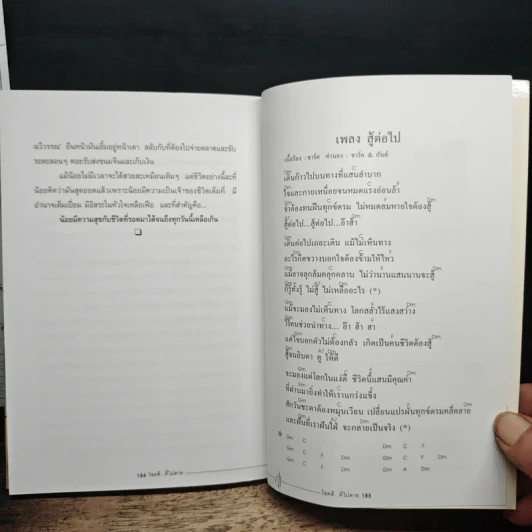 ฉวีวรรณ ยืนหน้ามันเยิ้มอยู่หน้าเตา สลับกับที่ต้องไปจ่ายตลาดและขับ
รถตะลอนๆ คอยรับส่งขนมจีนและเก็บเงิน
แม้น้อยไม่มีเวลาจะได้สวยสะเหมือนเดิมๆ แต่ชีวิตอย่างนี้ละที่
น้อยคิดว่ามันสุดยอดแล้วเพราะน้อยมีความเป็นเจ้าของชีวิตเต็มที่ มี
อำนาจเต็มเปี่ยม มีอิสระในหัวใจเหลือเฟือ และที่สำคัญคือ...
น้อยมีความสุขกับชีวิตที่รอดมาได้จนถึงทุกวันนี้เหลือเกิน
184 โชคดี ที่ไม่ตาย
เพลง สู้ต่อไป
เนื้อร้อง : ชาร์ต ทำนอง : ชาร์ต & กันต์
Gm C
เดินก้าวไปบนทางที่แสนลำบาก
Gm C F
ใจและกายเหนื่อยจนหมดแรงอ่อนล้า
Gm C F Dm
จำต้องทนฝืนทุกข์ตรม ไม่หมดลมหายใจต้องสู้
Gm Dm
สู้ต่อไป...สู้ต่อไป...อ๊าส้า
Gm C
เดินต่อไปเถอะเดิน แม้ไม่เห็นทาง
Gm C F
อะไรกีดขวางบอกใจต้องข้ามให้ไหว
Gm C F Dm
แม้อาจลุกล้มคลุกคลาน ไม่ว่านานแสนนานจะสู้
Gm A Dm
ก็รู้ทั้งรู้ ไม่สู้ ไม่เหลืออะไร (*)
Gm C
แม้จะมองไม่เห็นทาง โลกสลัวไร้แสงสว่าง
Gm C F
ไร้คนช่วยนำทาง... อ๊า ล้า ล้า
Gm C F Dm
แต่ใจบอกตัวไม่ต้องกลัว เกิดเป็นคนชีวิตต้องสู้
Gm A7 Dm
สู้จนยิบตา ดู ให้ดี
Gm C Dm
จะมองแต่โลกในแง่ดี ชีวิตนี้แสนมีคุณค่า
Gm C F
ที่ผ่านมายิ่งทำให้เราแกร่งแข็ง
Gm C F Dm
สักวันชะตาต้องหมุนเวียน เปลี่ยนแปรผันทุกข์ตรมคลี่คลาย
Gm A7 Dm
และคืนที่เราฝันใฝ่ จะกลายเป็นจริง (*)
Gm C Dm C F
Gm C F Dm Gm C F Dm
Gm C F Dm Gm A Dm
โชคดี ที่ไม่ตาย 185